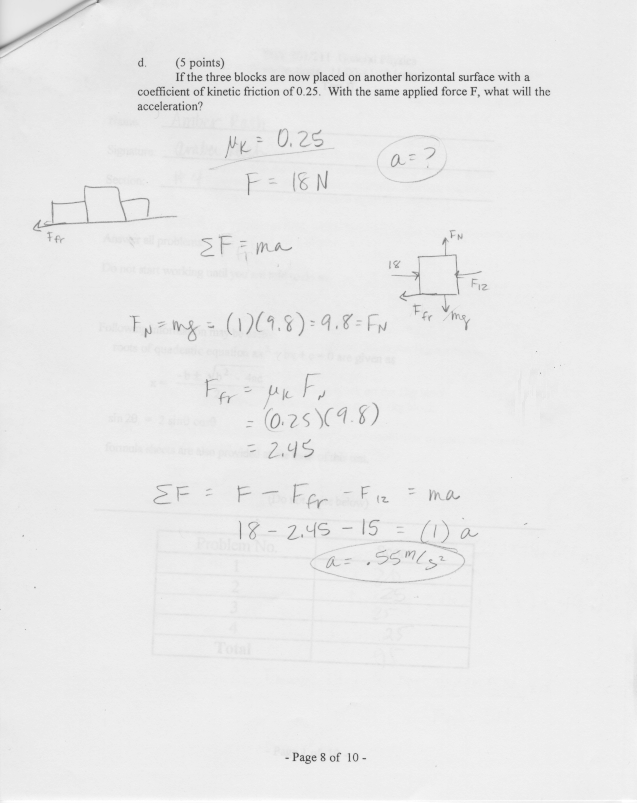 d. (5 points)
If the three blocks are now placed on another horizontal surface with a
coefficient of kinetic friction of 0.25. With the same applied force F, what will the
acceleration?
μK = 0.25
a = ?
F = 18 N
Ffr
ΣF = ma
FN
18
F12
Ffr
mg
FN = mg = (1)(9.8) = 9.8 = FN
Ffr = μK FN
= (0.25)(9.8)
= 2.45
ΣF = F - Ffr - F12 = ma
18 - 2.45 - 15 = (1) a
a = .55 m/s²
Problem No.
1
2
3
4
Total
- Page 8 of 10 -